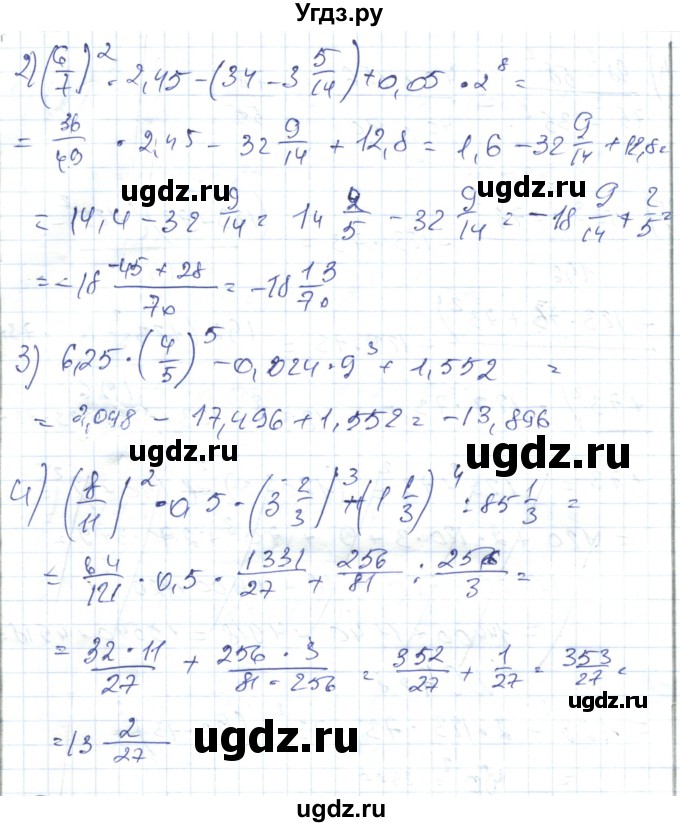 Угдз.ру
2) (6/7)² · 2,45 - (34 - 3 5/14) + 0,05 · 2⁸ =
= 36/49 · 2,45 - 32 9/14 + 12,8 = 1,6 - 32 9/14 + 12,8 =
ugdz.ru ugdz.ru
= 14,4 - 32 9/14 = 14 2/5 - 32 9/14 = -18 9/14 + 2/5 =
= -18 (-45 + 28)/70 = -18 13/70
ugdz.ru
3) 6,25 · (4/5)⁵ - 0,024 · 9³ + 1,552 =
= 2,048 - 17,496 + 1,552 = -13,896
ugdz.ru ugdz.ru
4) (8/11)² · 0,5 · (3 2/3)³ + (1 1/3)⁴ : 85 1/3 =
= 64/121 · 0,5 · 1331/27 + 256/81 : 256/3 =
ugdz.ru
= (32 · 11)/27 + (256 · 3)/(81 · 256) = 352/27 + 1/27 = 353/27 =
ugdz.ru
= 13 2/27
ugdz.ru
ugdz.ru